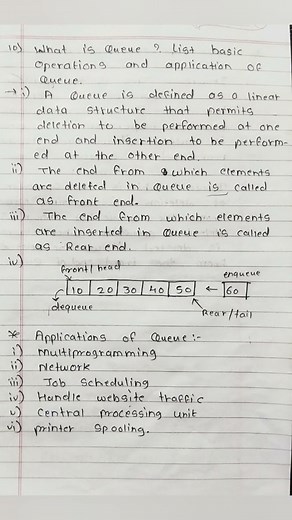 10) What is Queue ? List basic
operations and application of
Queue.
→ i) A Queue is defined as a linear
data structure that permits
deletion to be performed at one
end and insertion to be perform-
ed at the other end.
ii) The end from which elements
are deleted in queue is called
as front end.
iii) The end from which elements
are inserted in Queue is called
as Rear end.
iv)
front/head
enqueue
10 20 30 40 50 ← 60
dequeue
Rear/tail
* Applications of Queue :-
i) Multiprogramming
ii) Network
iii) Job Scheduling
iv) Handle website traffic
v) Central processing unit
vi) printer Spooling.